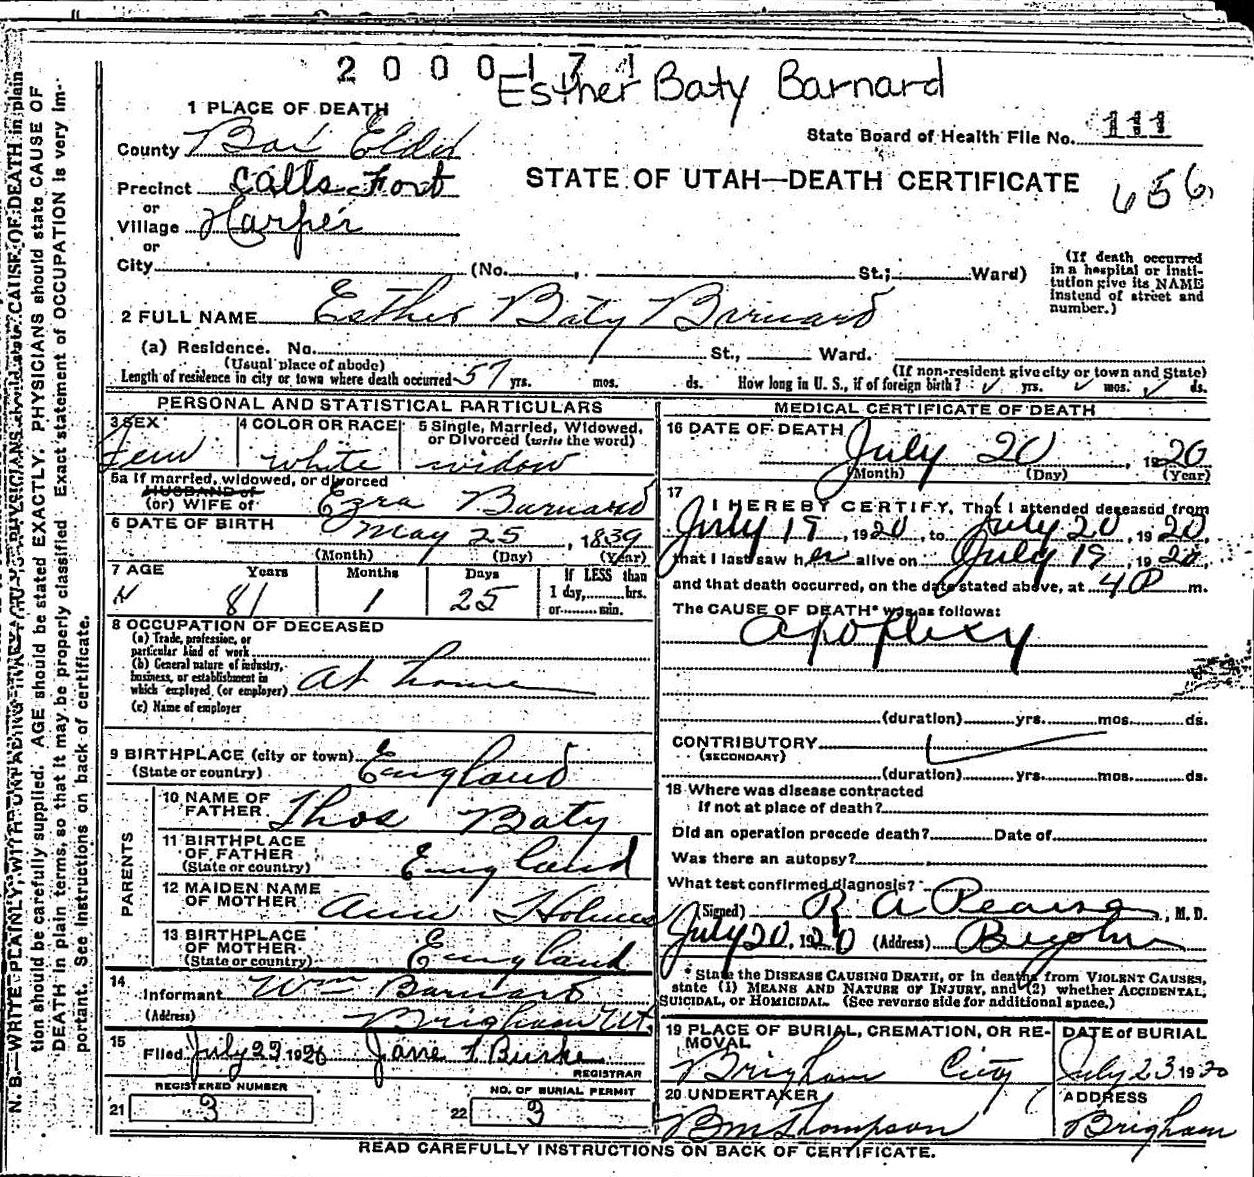 2000171
Esther Baty Barnard
1 PLACE OF DEATH
State Board of Health File No. 111
County Box Elder
656
Precinct Calls Fort
STATE OF UTAH—DEATH CERTIFICATE
or
Village Harper
or
City (No. , St.; Ward)
(If death occurred in a hospital or institution give its NAME instead of street and number.)
2 FULL NAME Esther Baty Barnard
(a) Residence. No. St., Ward.
(Usual place of abode) (If non-resident give city or town and State)
Length of residence in city or town where death occurred 57 yrs. mos. ds. How long in U. S., if of foreign birth? yrs. mos. ds.
PERSONAL AND STATISTICAL PARTICULARS
3 SEX Fem
4 COLOR OR RACE white
5 Single, Married, Widowed, or Divorced (write the word) widow
5a If married, widowed, or divorced
HUSBAND of
(or) WIFE of Ezra Barnard
6 DATE OF BIRTH May 25, 1839
(Month) (Day) (Year)
7 AGE Years Months Days If LESS than
81 1 25 1 day, hrs.
or min.
8 OCCUPATION OF DECEASED
(a) Trade, profession, or particular kind of work
(b) General nature of industry, business, or establishment in which employed (or employer) at home
(c) Name of employer
9 BIRTHPLACE (city or town) England
(State or country)
PARENTS
10 NAME OF FATHER Thos Baty
11 BIRTHPLACE OF FATHER England
(State or country)
12 MAIDEN NAME OF MOTHER Ann Holmes
13 BIRTHPLACE OF MOTHER England
(State or country)
14
Informant Wm Barnard
(Address) Brigham Ut.
15 Filed July 23 1920 Jane Burke
REGISTRAR
REGISTERED NUMBER NO. OF BURIAL PERMIT
21 3 22 3
MEDICAL CERTIFICATE OF DEATH
16 DATE OF DEATH July 20, 1920
(Month) (Day) (Year)
17 I HEREBY CERTIFY, That I attended deceased from
July 19, 1920, to July 20, 1920,
that I last saw her alive on July 19, 1920,
and that death occurred, on the date stated above, at 4 P m.
The CAUSE OF DEATH* was as follows:
apoplexy
(duration) yrs. mos. ds.
CONTRIBUTORY
(SECONDARY)
(duration) yrs. mos. ds.
18 Where was disease contracted
if not at place of death?
Did an operation precede death? Date of
Was there an autopsy?
What test confirmed diagnosis?
(Signed) R A Pearse, M. D.
July 20, 1920 (Address)
* State the DISEASE CAUSING DEATH, or in deaths from VIOLENT CAUSES,
state (1) MEANS AND NATURE OF INJURY, and (2) whether ACCIDENTAL,
SUICIDAL, or HOMICIDAL. (See reverse side for additional space.)
19 PLACE OF BURIAL, CREMATION, OR REMOVAL DATE of BURIAL
Brigham City July 23 1920
20 UNDERTAKER ADDRESS
Thompson Brigham
READ CAREFULLY INSTRUCTIONS ON BACK OF CERTIFICATE.
N. B.—WRITE PLAINLY, WITH UNFADING
tion should be carefully supplied. AGE should be stated EXACTLY. PHYSICIANS should state CAUSE OF
DEATH in plain terms, so that it may be properly classified. Exact statement of OCCUPATION is very im-
portant. See instructions on back of certificate.